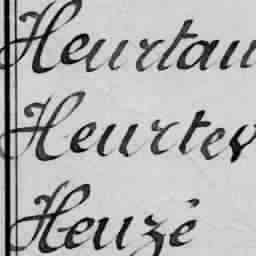 Heurtau
Heurtev
Heuzé